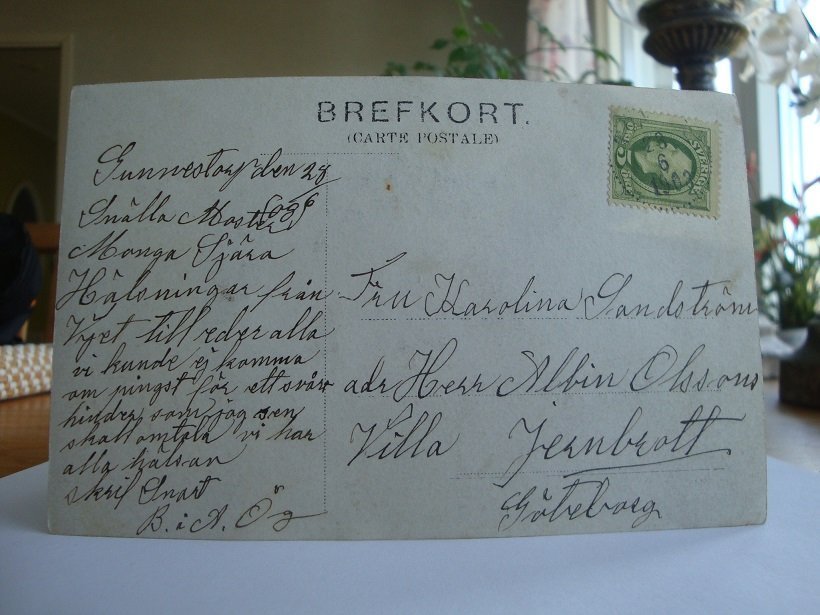 BREFKORT.
(CARTE POSTALE)
Gunnestorp den 28
Snälla Moster
Monga Sjära
Hälsningar från
till eder alla
vi kunde ej komma
om pingst för ett svårt
hinder som jag sen
skall omtala vi har
alla hälsan
skrif Snart
B. i A. Ög
Fru Karolina Sandström
adr Herr Albin Olssons
Villa Jernbrott
Göteborg
SVERIGE